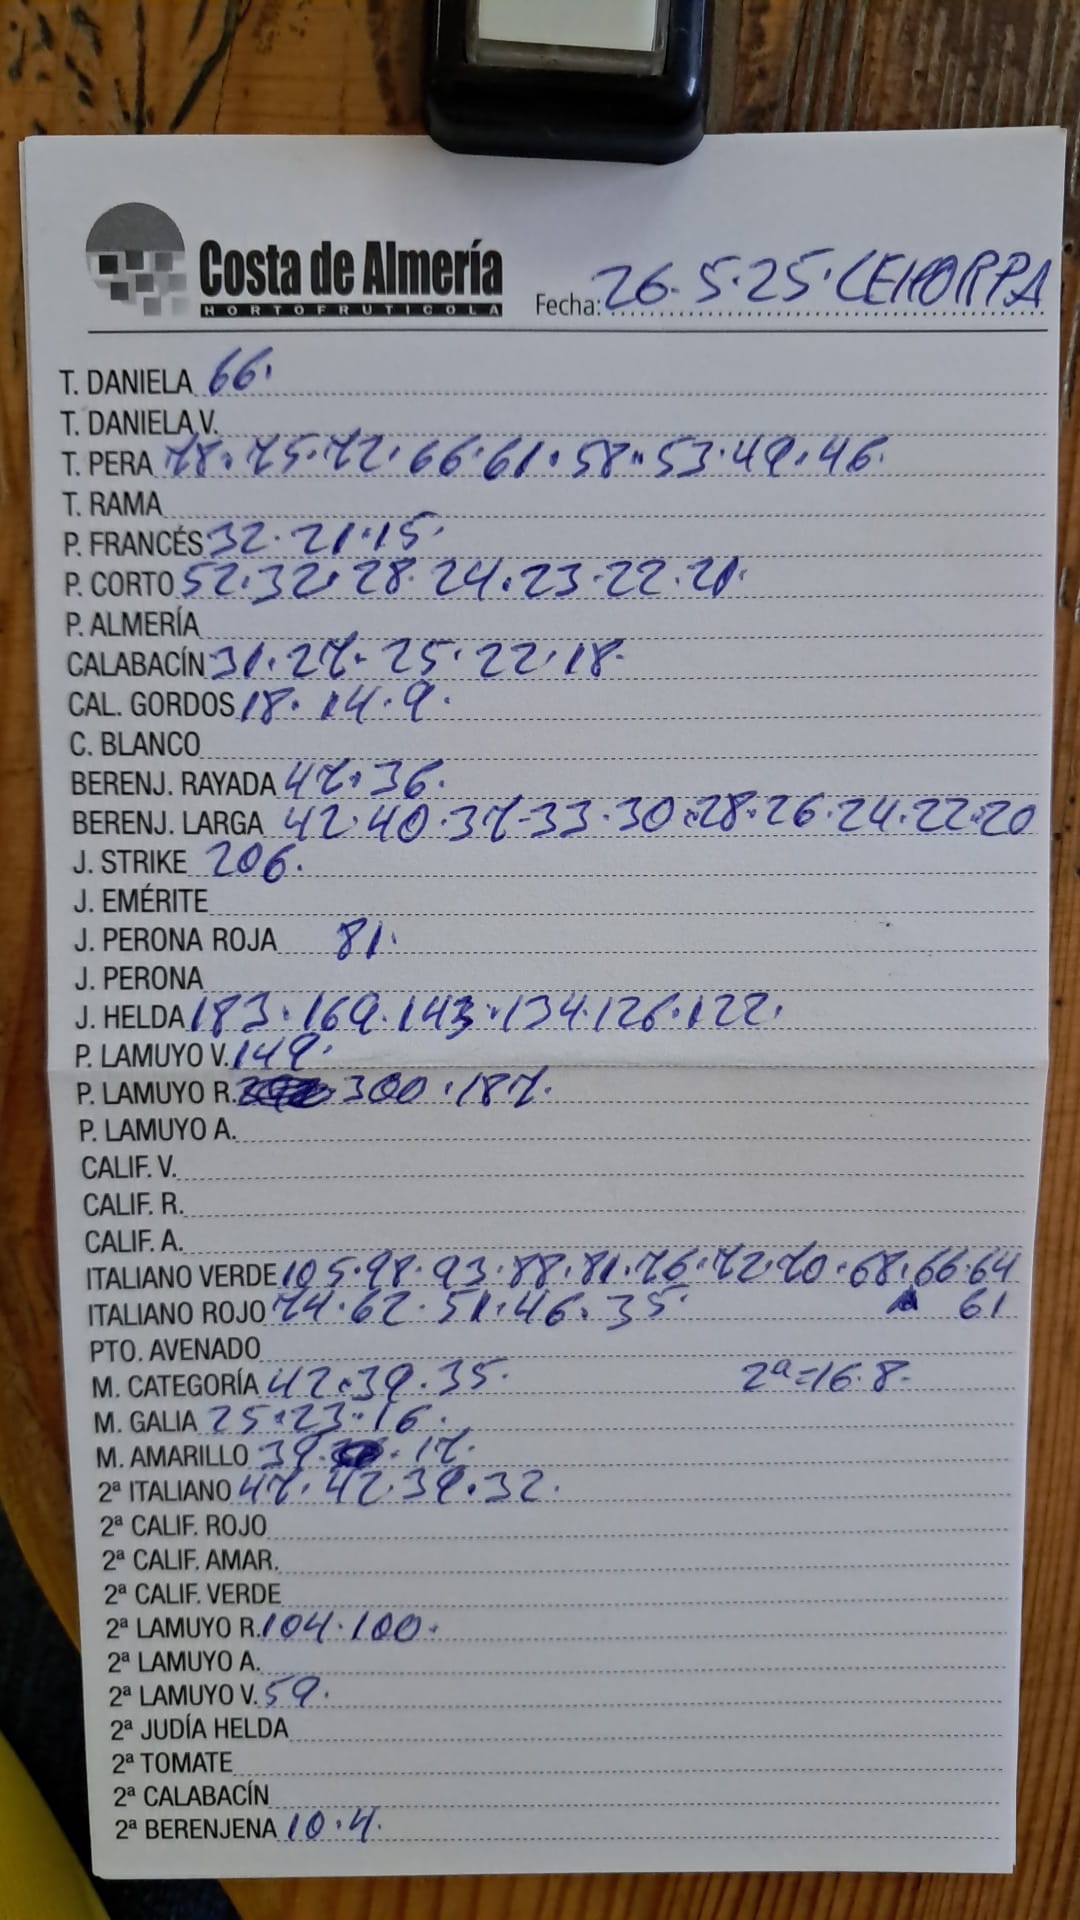 Costa de Almería
HORTOFRUTICOLA
Fecha: 26.5.25. CEHORPA
T. DANIELA 66.
T. DANIELA V.
T. PERA 78.75.72.66.61.58.53.49.46.
T. RAMA
P. FRANCÉS 32.21.15.
P. CORTO 52.32.28.24.23.22.21.
P. ALMERÍA
CALABACÍN 31.27.25.22.18.
CAL. GORDOS 18.14.9.
C. BLANCO
BERENJ. RAYADA 47.36.
BERENJ. LARGA 42.40.37-33.30.28.26.24.22.20
J. STRIKE 206.
J. EMÉRITE
J. PERONA ROJA 81.
J. PERONA
J. HELDA 183.169.143.134.126.122.
P. LAMUYO V. 149.
P. LAMUYO R. 300.187.
P. LAMUYO A.
CALIF. V.
CALIF. R.
CALIF. A.
ITALIANO VERDE 105.98.93.88.81.76.72.70.68.66.64
ITALIANO ROJO 74.62.51.46.35. 61
PTO. AVENADO
M. CATEGORÍA 42.39.35. 2ª=16.8.
M. GALIA 25.23.16.
M. AMARILLO 39. .17.
2ª ITALIANO 47.42.39.32.
2ª CALIF. ROJO
2ª CALIF. AMAR.
2ª CALIF. VERDE
2ª LAMUYO R. 104.100.
2ª LAMUYO A.
2ª LAMUYO V. 59.
2ª JUDÍA HELDA
2ª TOMATE
2ª CALABACÍN
2ª BERENJENA 10.4.